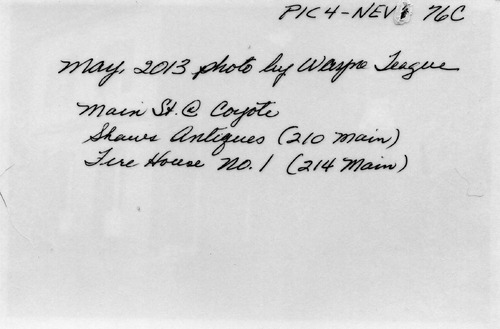 PIC 4-NEV 76C
May, 2013 photo by Wayne Teague
Main St. @ Coyote
Shaws Antiques (210 Main)
Fire House No. 1 (214 Main)